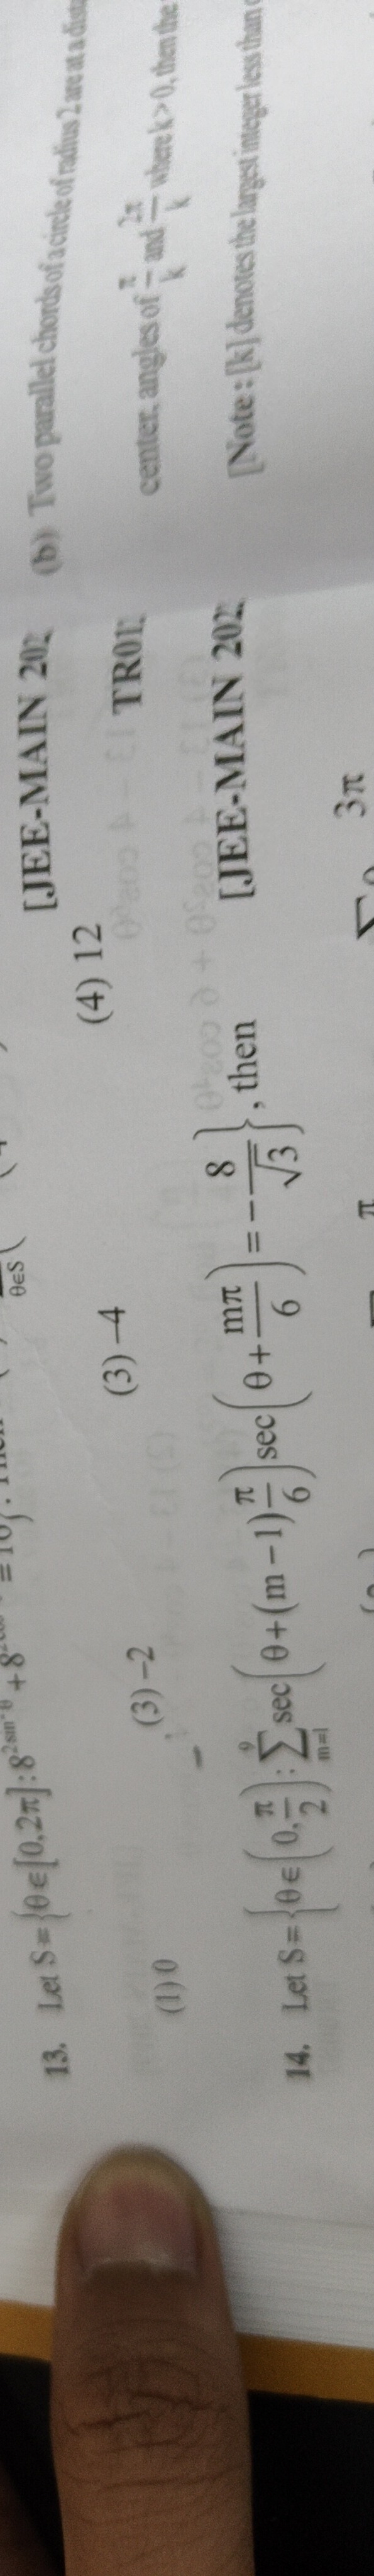 13. Let S = {θ ∈ [0, 2π] : 8^{2sin²θ} + 8^{2cos²θ} = 16}. Then
θ∈S
[JEE-MAIN 202
(1) 0 (3) –2 (3) –4 (4) 12
TR01
14. Let S = {θ ∈ (0, π/2) : ∑_{m=1}^{9} sec(θ + (m – 1)π/6) sec(θ + mπ/6) = –8/√3}, then
[JEE-MAIN 202
π
3π
(b) Two parallel chords of a circle of radius 2 are at a
center, angles of π/k and 2π/k where k > 0, then the
[Note : [k] denotes the largest integer less than